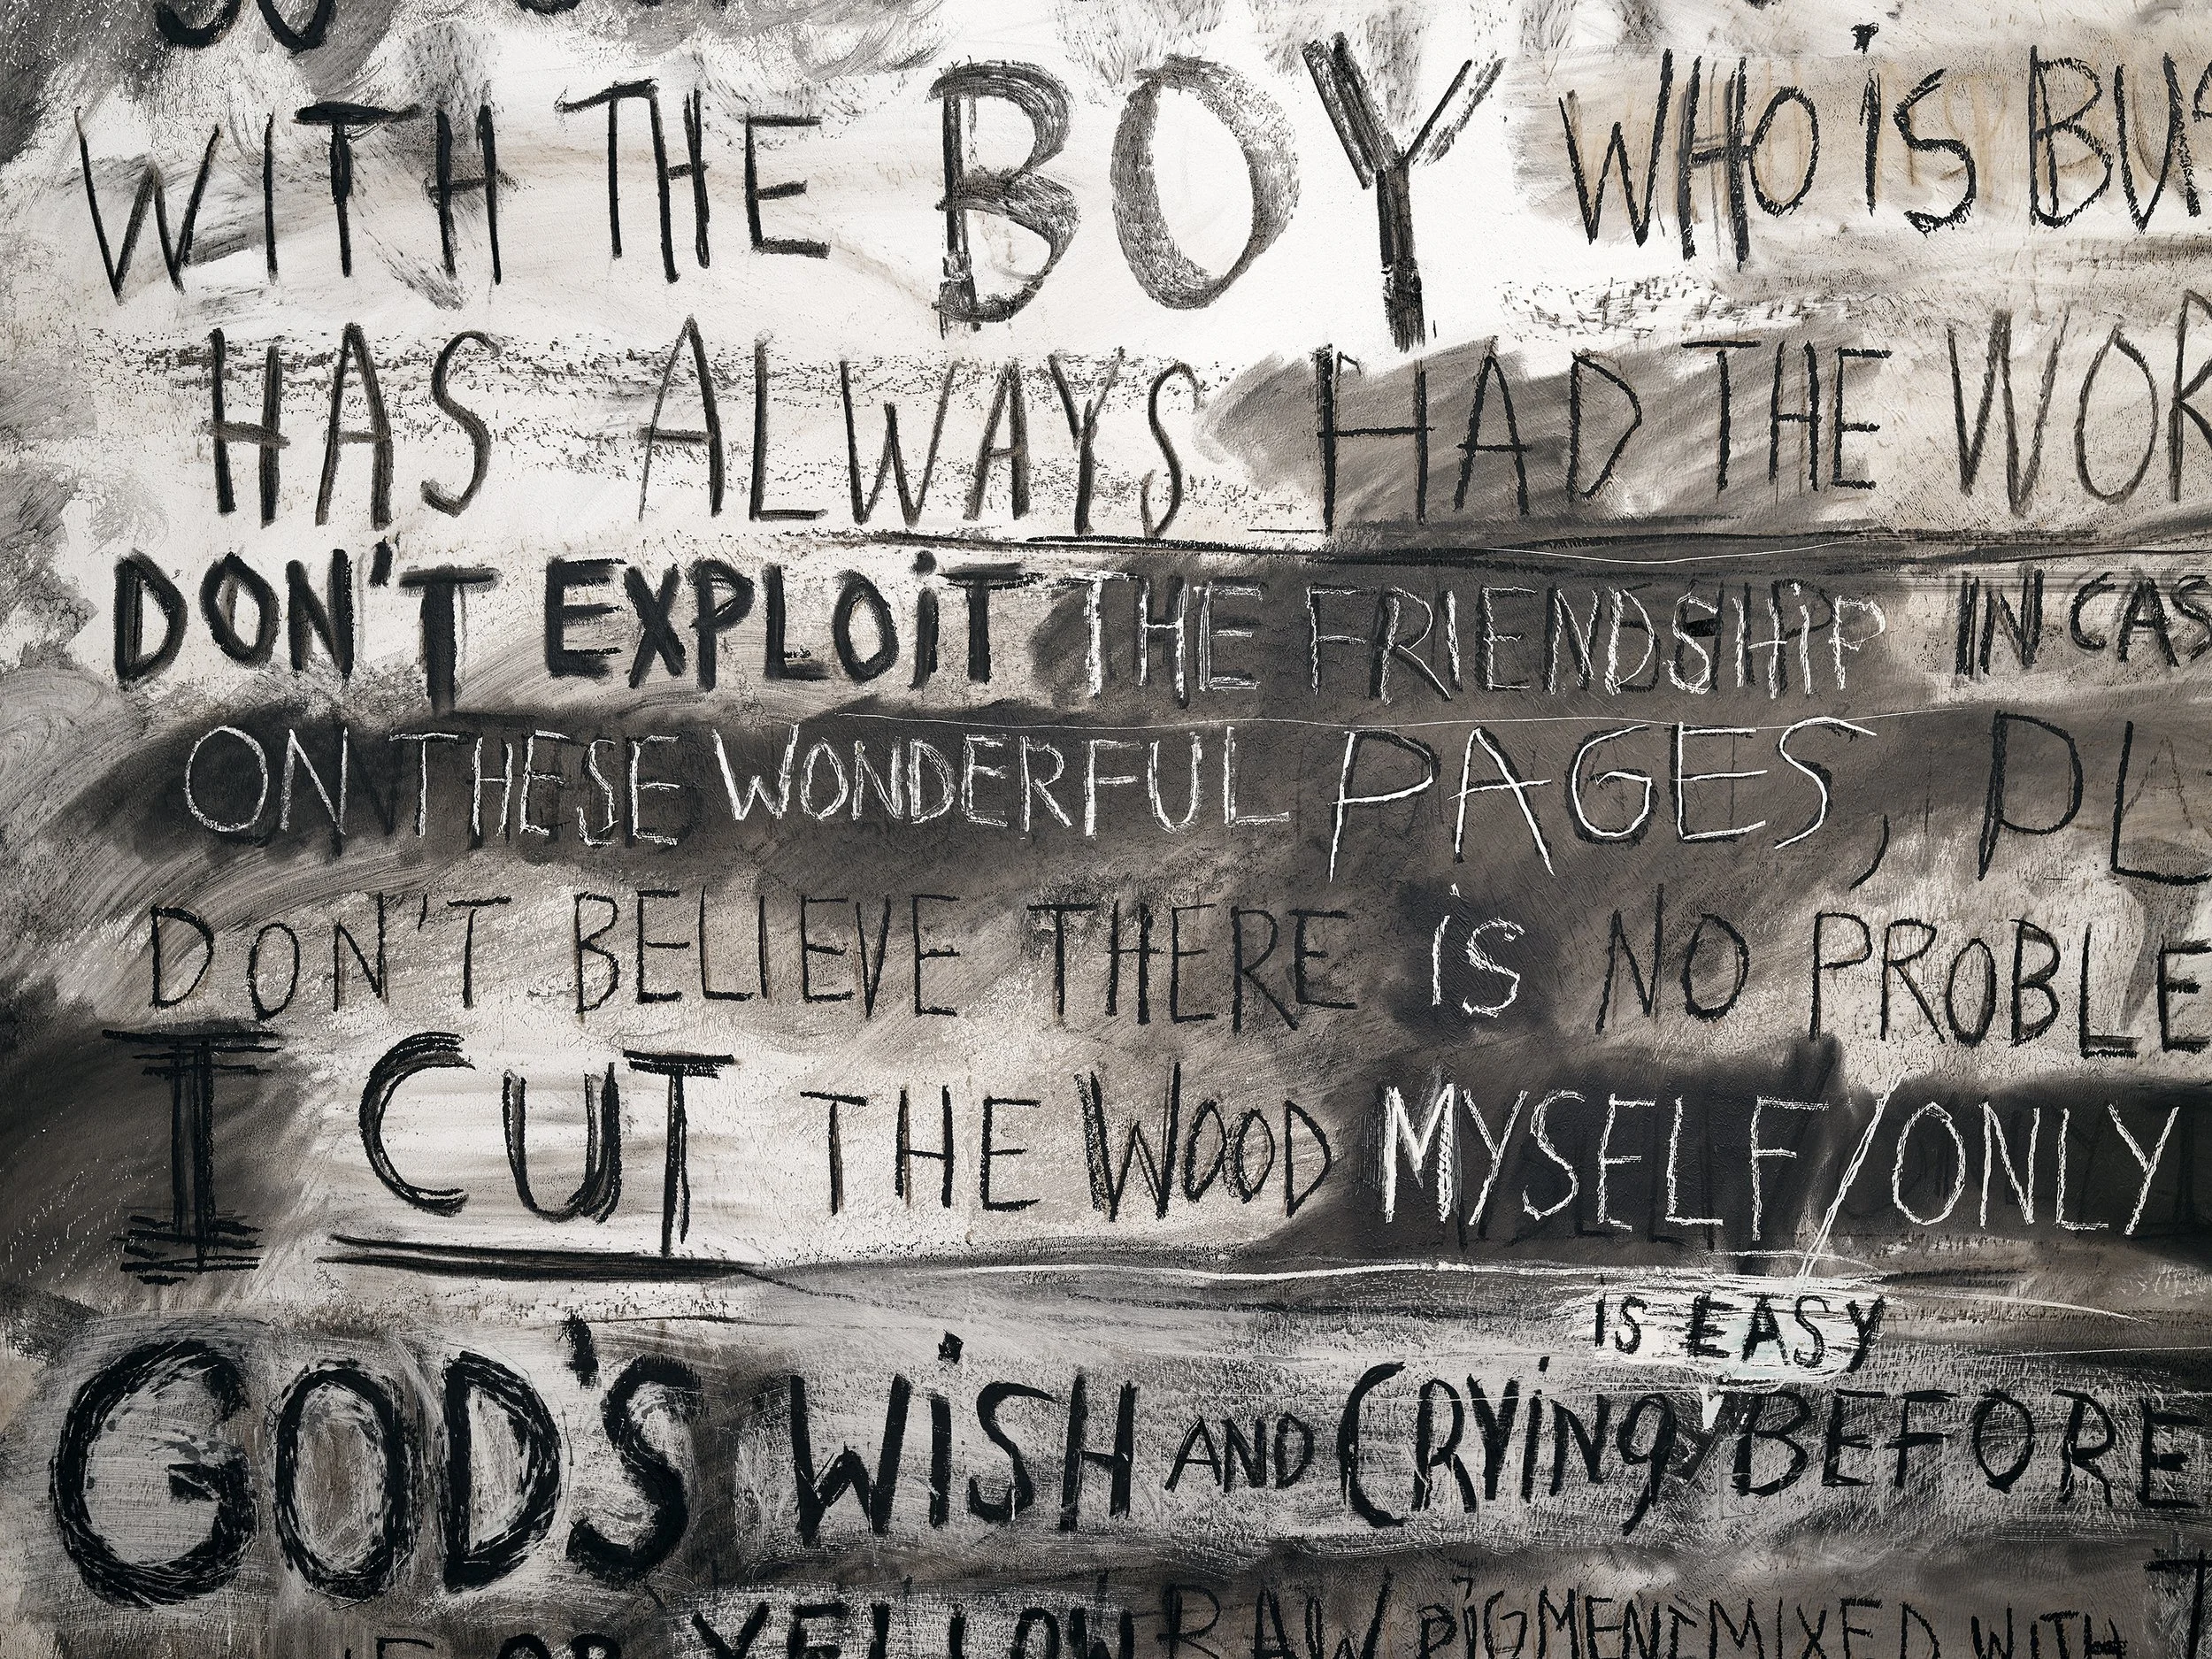 WITH THE BOY WHO iS
HAS ALWAYS HAD THE
DON'T EXPLOiT THE FRIENDSHiP IN
ON THESE WONDERFUL PAGES,
DON'T BELIEVE THERE iS NO
I CUT THE WOOD MYSELF/ONLY
IS EASY
GOD'S WiSH AND CRYiNg BEFORE
OR YELLOW RAW PiGMENT MIXED WITH